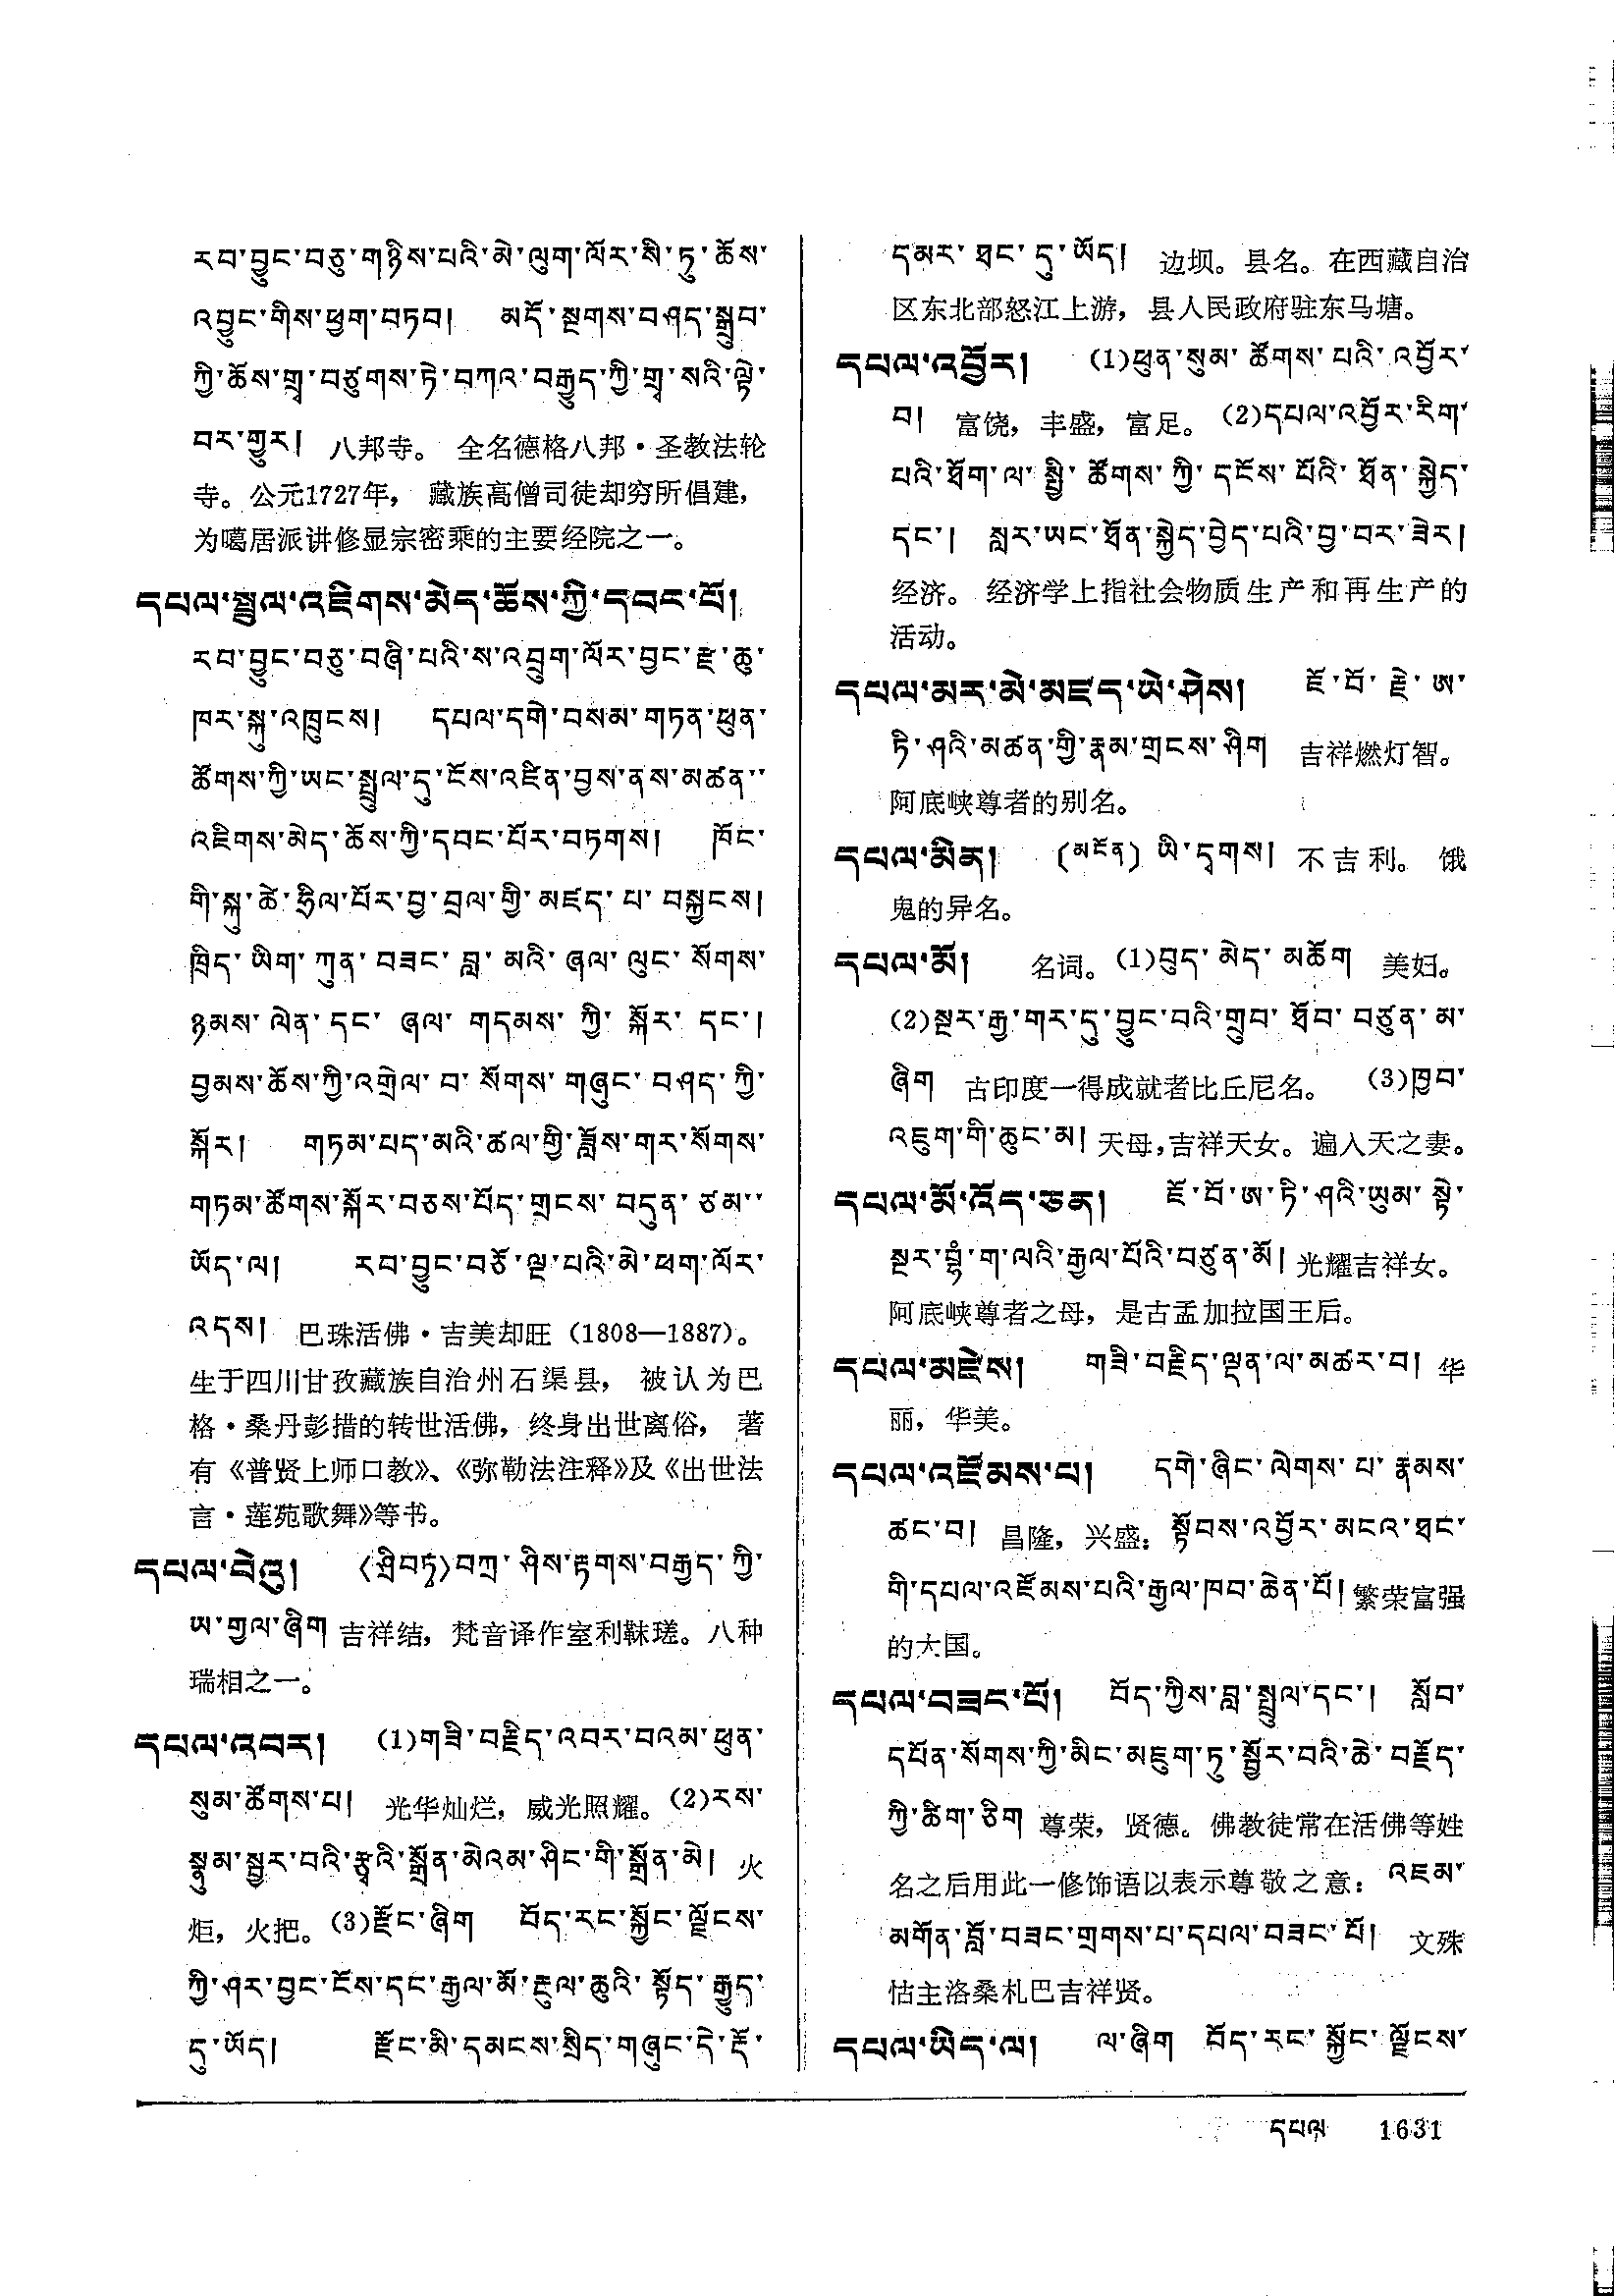 རབ་བྱུང་བཅུ་གཉིས་པའི་མེ་ལུག་ལོར་སི་ཏུ་ཆོས་
འབྱུང་གིས་ཕྱག་བཏབ། མདོ་སྔགས་བཤད་སྒྲུབ་
ཀྱི་ཆོས་གྲྭ་བཙུགས་ཏེ་བཀའ་བརྒྱུད་ཀྱི་གྲྭ་སའི་ལྟེ་
བར་གྱུར། 八邦寺。 全名德格八邦·圣教法轮
寺。公元1727年， 藏族高僧司徒却穷所倡建，
为噶居派讲修显宗密乘的主要经院之一。
དཔལ་སྤྲུལ་འཇིགས་མེད་ཆོས་ཀྱི་དབང་པོ།
རབ་བྱུང་བཅུ་བཞི་པའི་ས་འབྲུག་ལོར་བྱང་རྫ་ཆུ་
ཁར་སྐུ་འཁྲུངས། དཔལ་དགེ་བསམ་གཏན་ཕུན་
ཚོགས་ཀྱི་ཡང་སྤྲུལ་དུ་ངོས་འཛིན་བྱས་ནས་མཚན་་
འཇིགས་མེད་ཆོས་ཀྱི་དབང་པོར་བཏགས། ཁོང་
གི་སྐུ་ཚེ་ཧྲིལ་པོར་བྱ་བྲལ་གྱི་མཛད་པ་བསྐྱངས།
ཁྲིད་ཡིག་ཀུན་བཟང་བླ་མའི་ཞལ་ལུང་སོགས་
ཉམས་ལེན་དང་ཞལ་གདམས་ཀྱི་སྐོར་དང་།
བྱམས་ཆོས་ཀྱི་འགྲེལ་བ་སོགས་གཞུང་བཤད་ཀྱི་
སྐོར། གཏམ་པད་མའི་ཚལ་གྱི་ཟློས་གར་སོགས་
གཏམ་ཚོགས་སྐོར་བཅས་པོད་གྲངས་བདུན་ཙམ་་
ཡོད་ལ། རབ་བྱུང་བཅོ་ལྔ་པའི་མེ་ཕག་ལོར་
འདས། 巴珠活佛·吉美却旺（1808—1887）。
生于四川甘孜藏族自治州石渠县， 被认为巴
格·桑丹彭措的转世活佛，终身出世离俗， 著
有《普贤上师口教》、《弥勒法注释》及《出世法
言·莲苑歌舞》等书。
དཔལ་བེའུ། 〈ཤྲིབཏྶ〉བཀྲ་ཤིས་རྟགས་བརྒྱད་ཀྱི་
ཡ་གྱལ་ཞིག 吉祥结，梵音译作室利靺瑳。八种
瑞相之一。
དཔལ་འབར། (1)གཟི་བརྗིད་འབར་བའམ་ཕུན་
སུམ་ཚོགས་པ། 光华灿烂，威光照耀。(2)རས་
སྣུམ་སྦྱར་བའི་རྩྭའི་སྒྲོན་མེའམ་ཤིང་གི་སྒྲོན་མེ། 火
炬，火把。(3)རྫོང་ཞིག བོད་རང་སྐྱོང་ལྗོངས་
ཀྱི་ཤར་བྱང་ངོས་དང་རྒྱལ་མོ་རྔུལ་ཆུའི་སྟོད་རྒྱུད་
དུ་ཡོད། རྫོང་མི་དམངས་སྲིད་གཞུང་དེ་རྡོ་
དམར་ཐང་དུ་ཡོད། 边坝。县名。在西藏自治
区东北部怒江上游，县人民政府驻东马塘。
དཔལ་འབྱོར། (1)ཕུན་སུམ་ཚོགས་པའི་འབྱོར་
བ། 富饶，丰盛，富足。(2)དཔལ་འབྱོར་རིག་
པའི་ཐོག་ལ་སྤྱི་ཚོགས་ཀྱི་དངོས་པོའི་ཐོན་སྐྱེད་
དང་། སླར་ཡང་ཐོན་སྐྱེད་བྱེད་པའི་བྱ་བར་ཟེར།
经济。 经济学上指社会物质生产和再生产的
活动。
དཔལ་མར་མེ་མཛད་ཡེ་ཤེས། ཇོ་བོ་རྗེ་ཨ་
ཏི་ཤའི་མཚན་གྱི་རྣམ་གྲངས་ཤིག 吉祥燃灯智。
阿底峡尊者的别名。
དཔལ་མིན། (མངོན) ཡི་དྭགས། 不吉利。 饿
鬼的异名。
དཔལ་མོ། 名词。(1)བུད་མེད་མཆོག 美妇。
(2)སྔར་རྒྱ་གར་དུ་བྱུང་བའི་གྲུབ་ཐོབ་བཙུན་མ་
ཞིག 古印度一得成就者比丘尼名。 (3)ཁྱབ་
འཇུག་གི་ཆུང་མ། 天母，吉祥天女。遍入天之妻。
དཔལ་མོ་འོད་ཅན། ཇོ་བོ་ཨ་ཏི་ཤའི་ཡུམ་སྟེ་
སྔར་བྷཾ་ག་ལའི་རྒྱལ་པོའི་བཙུན་མོ། 光耀吉祥女。
阿底峡尊者之母，是古孟加拉国王后。
དཔལ་མཛེས། གཟི་བརྗིད་ལྡན་ལ་མཚར་བ། 华
丽，华美。
དཔལ་འཛོམས་པ། དགེ་ཞིང་ལེགས་པ་རྣམས་
ཚང་བ། 昌隆，兴盛：སྟོབས་འབྱོར་མངའ་ཐང་
གི་དཔལ་འཛོམས་པའི་རྒྱལ་ཁབ་ཆེན་པོ། 繁荣富强
的大国。
དཔལ་བཟང་པོ། བོད་ཀྱིས་བླ་སྤྲུལ་དང་། སློབ་
དཔོན་སོགས་ཀྱི་མིང་མཇུག་ཏུ་སྦྱོར་བའི་ཆེ་བརྗོད་
ཀྱི་ཚིག་ཅིག 尊荣，贤德。佛教徒常在活佛等姓
名之后用此一修饰语以表示尊敬之意：འཇམ་
མགོན་བློ་བཟང་གྲགས་པ་དཔལ་བཟང་པོ། 文殊
怙主洛桑札巴吉祥贤。
དཔལ་ཡིད་ལ། ལ་ཞིག བོད་རང་སྐྱོང་ལྗོངས་
དཔལ 1631